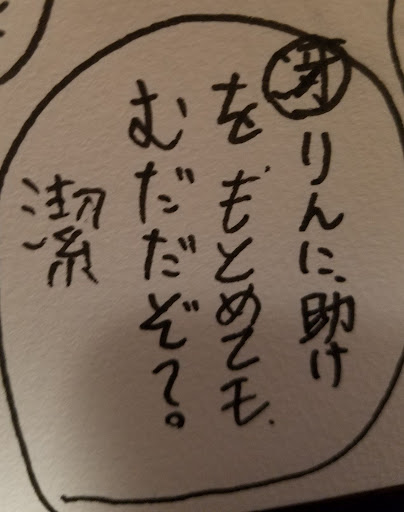 りんに助け
をもとめても
むだだぞ？
潔